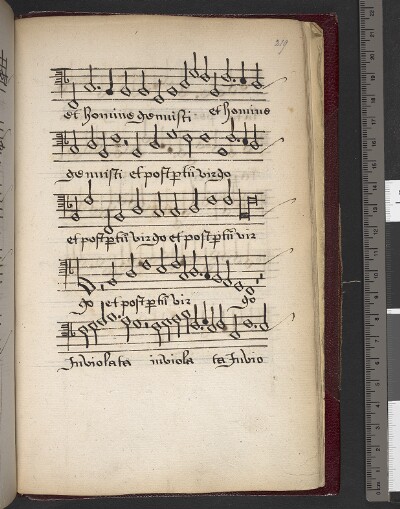 219
et homine genuisti et homine
genuisti et post p̱tū virgo
et post p̱tū virgo et post p̱tū vir
go et post p̱tū vir go
Inviolata inviola ta Invio